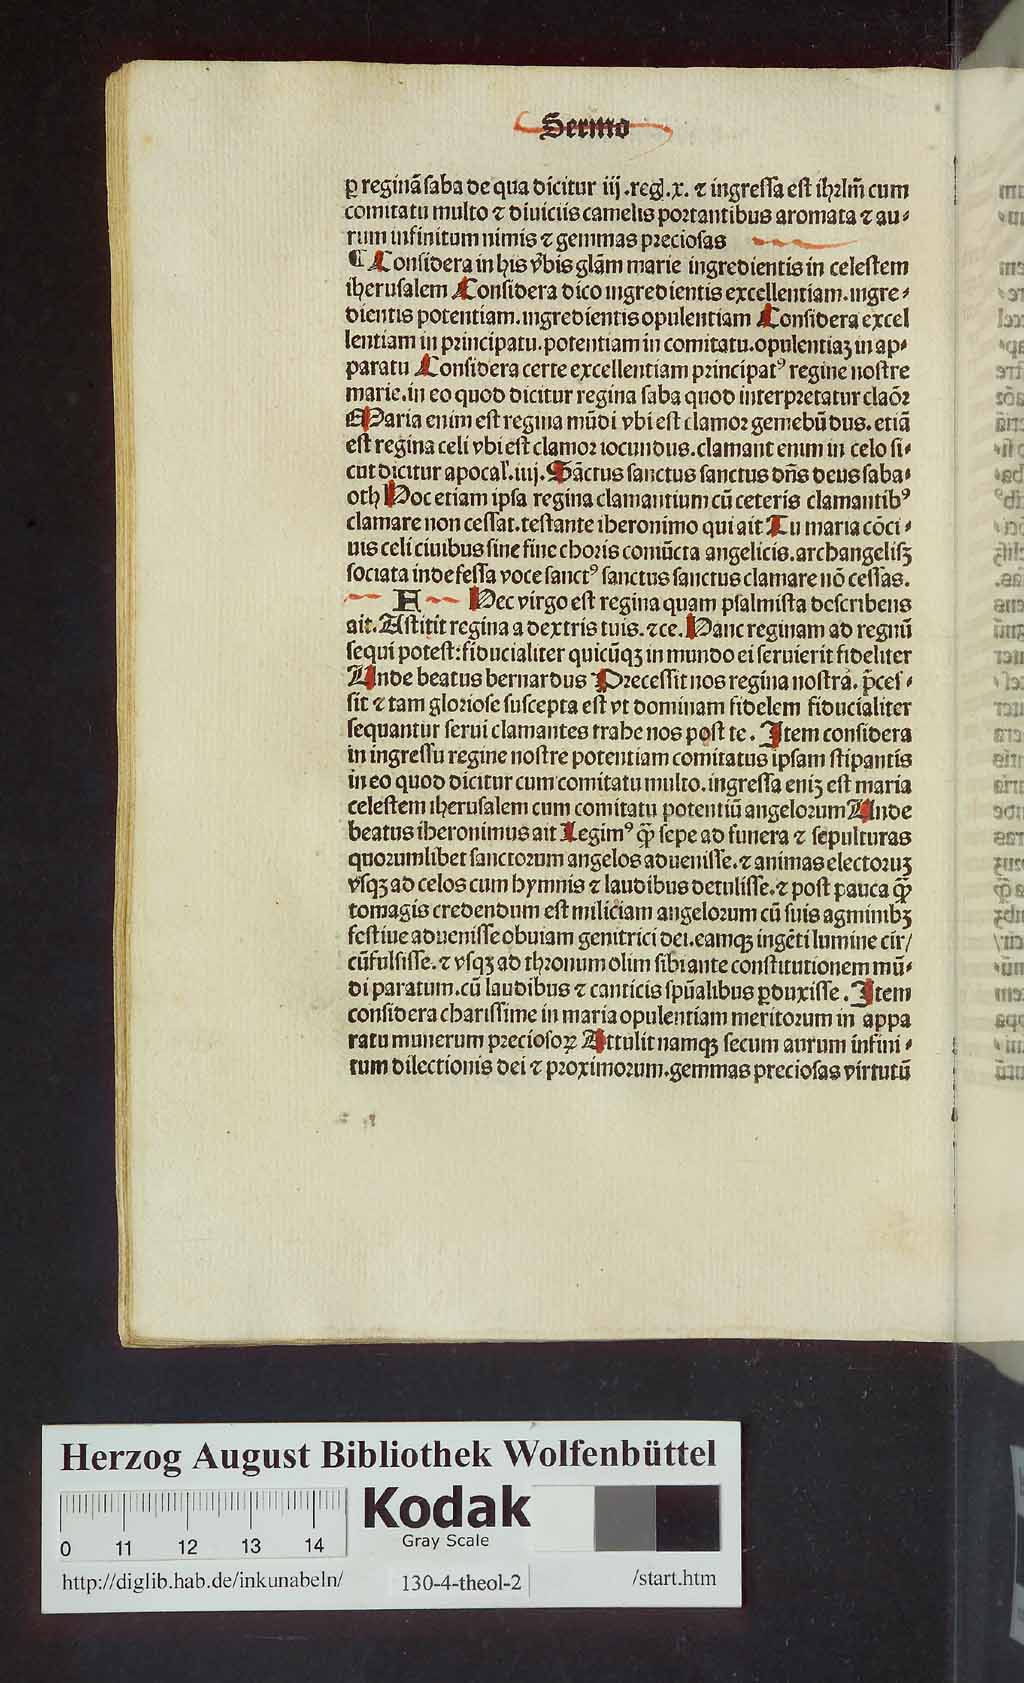 Sermo
ꝑ reginā saba de qua dicitur iij .regl̄.x. ⁊ ingressa est ihrlm̄ cum
comitatu multo ⁊ diuiciis camelis portantibus aromata ⁊ au⸗
rum infinitum nimis ⁊ gemmas preciosas
¶ Considera in his v̄bis glām marie ingredientis in celestem
iherusalem Considera dico ingredientis excellentiam.ingre⸗
dientis potentiam.ingredientis opulentiam Considera excel
lentiam in principatu.potentiam in comitatu.opulentiaꝫ in ap⸗
paratu Considera certe excellentiam principatꝰ regine nostre
marie.in eo quod dicitur regina saba quod interpretatur claōr
Maria enim est regina mūdi vbi est clamor gemebūdus. etiā
est regina celi vbi est clamor iocundus.clamant enim in celo si⸗
cut dicitur apocal̄.iiij. Sāctus sanctus sanctus dn̄s deus saba⸗
oth Hoc etiam ipsa regina clamantium cū ceteris clamantibꝰ
clamare non cessat.testante iheronimo qui ait Tu maria cōci⸗
uis celi ciuibus sine fine choris coniūcta angelicis.archangelisꝫ
sociata indefessa voce sanctꝰ sanctus sanctus clamare nō cessas.
H Hec virgo est regina quam psalmista describens
ait.Astitit regina a dextris tuis.⁊ce. Hanc reginam ad regnū
sequi potest:fiducialiter quicūqꝫ in mundo ei seruierit fideliter
Unde beatus bernardus Precessit nos regina nostra. p̄ces⸗
sit ⁊ tam gloriose suscepta est vt dominam fidelem fiducialiter
sequantur serui clamantes trahe nos post te. Item considera
in ingressu regine nostre potentiam comitatus ipsam stipantis
in eo quod dicitur cum comitatu multo.ingressa eniꝫ est maria
celestem iherusalem cum comitatu potentiū angelorum Unde
beatus iheronimus ait Legimꝰ ꝙ̄ sepe ad funera ⁊ sepulturas
quorumlibet sanctorum angelos aduenisse.⁊ animas electoruꝫ
vsqꝫ ad celos cum hymnis ⁊ laudibus detulisse.⁊ post pauca ꝙ̄
tomagis credendum est miliciam angelorum cū suis agminibꝫ
festiue aduenisse obuiam genitrici dei.eamqꝫ ingēti lumine cir/
cūfulsisse.⁊ vsqꝫ ad thronum olim sibi ante constitutionem mū⸗
di paratum.cū laudibus ⁊ canticis spūalibus ꝑduxisse. Item
considera charissime in maria opulentiam meritorum in appa
ratu munerum preciosoꝝ Attulit namqꝫ secum aurum infini⸗
tum dilectionis dei ⁊ proximorum.gemmas preciosas virtutū
Herzog August Bibliothek Wolfenbüttel
Kodak
Gray Scale
0 11 12 13 14
http://diglib.hab.de/inkunabeln/ 130-4-theol-2 /start.htm